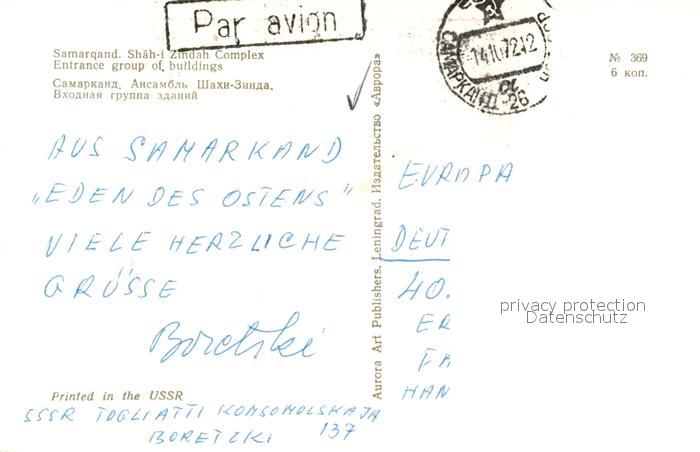 Par avion
Samarqand. Shāh-i Zindah Complex
Entrance group of buildings
Самарканд. Ансамбль Шахи-Зинда.
Входная группа зданий
№ 369
6 коп.
САМАРКАНД-26
AUS SAMARKAND
"EDEN DES OSTENS"
VIELE HERZLICHE
GRÜSSE
Boretzki
Printed in the USSR
SSSR TOGLIATTI KOMSOMOLSKAJA
137
BORETZKI
Aurora Art Publishers. Leningrad. Издательство «Аврора»
EVROPA
DEUT
40.
ER
FA
HAN
privacy protection
Datenschutz